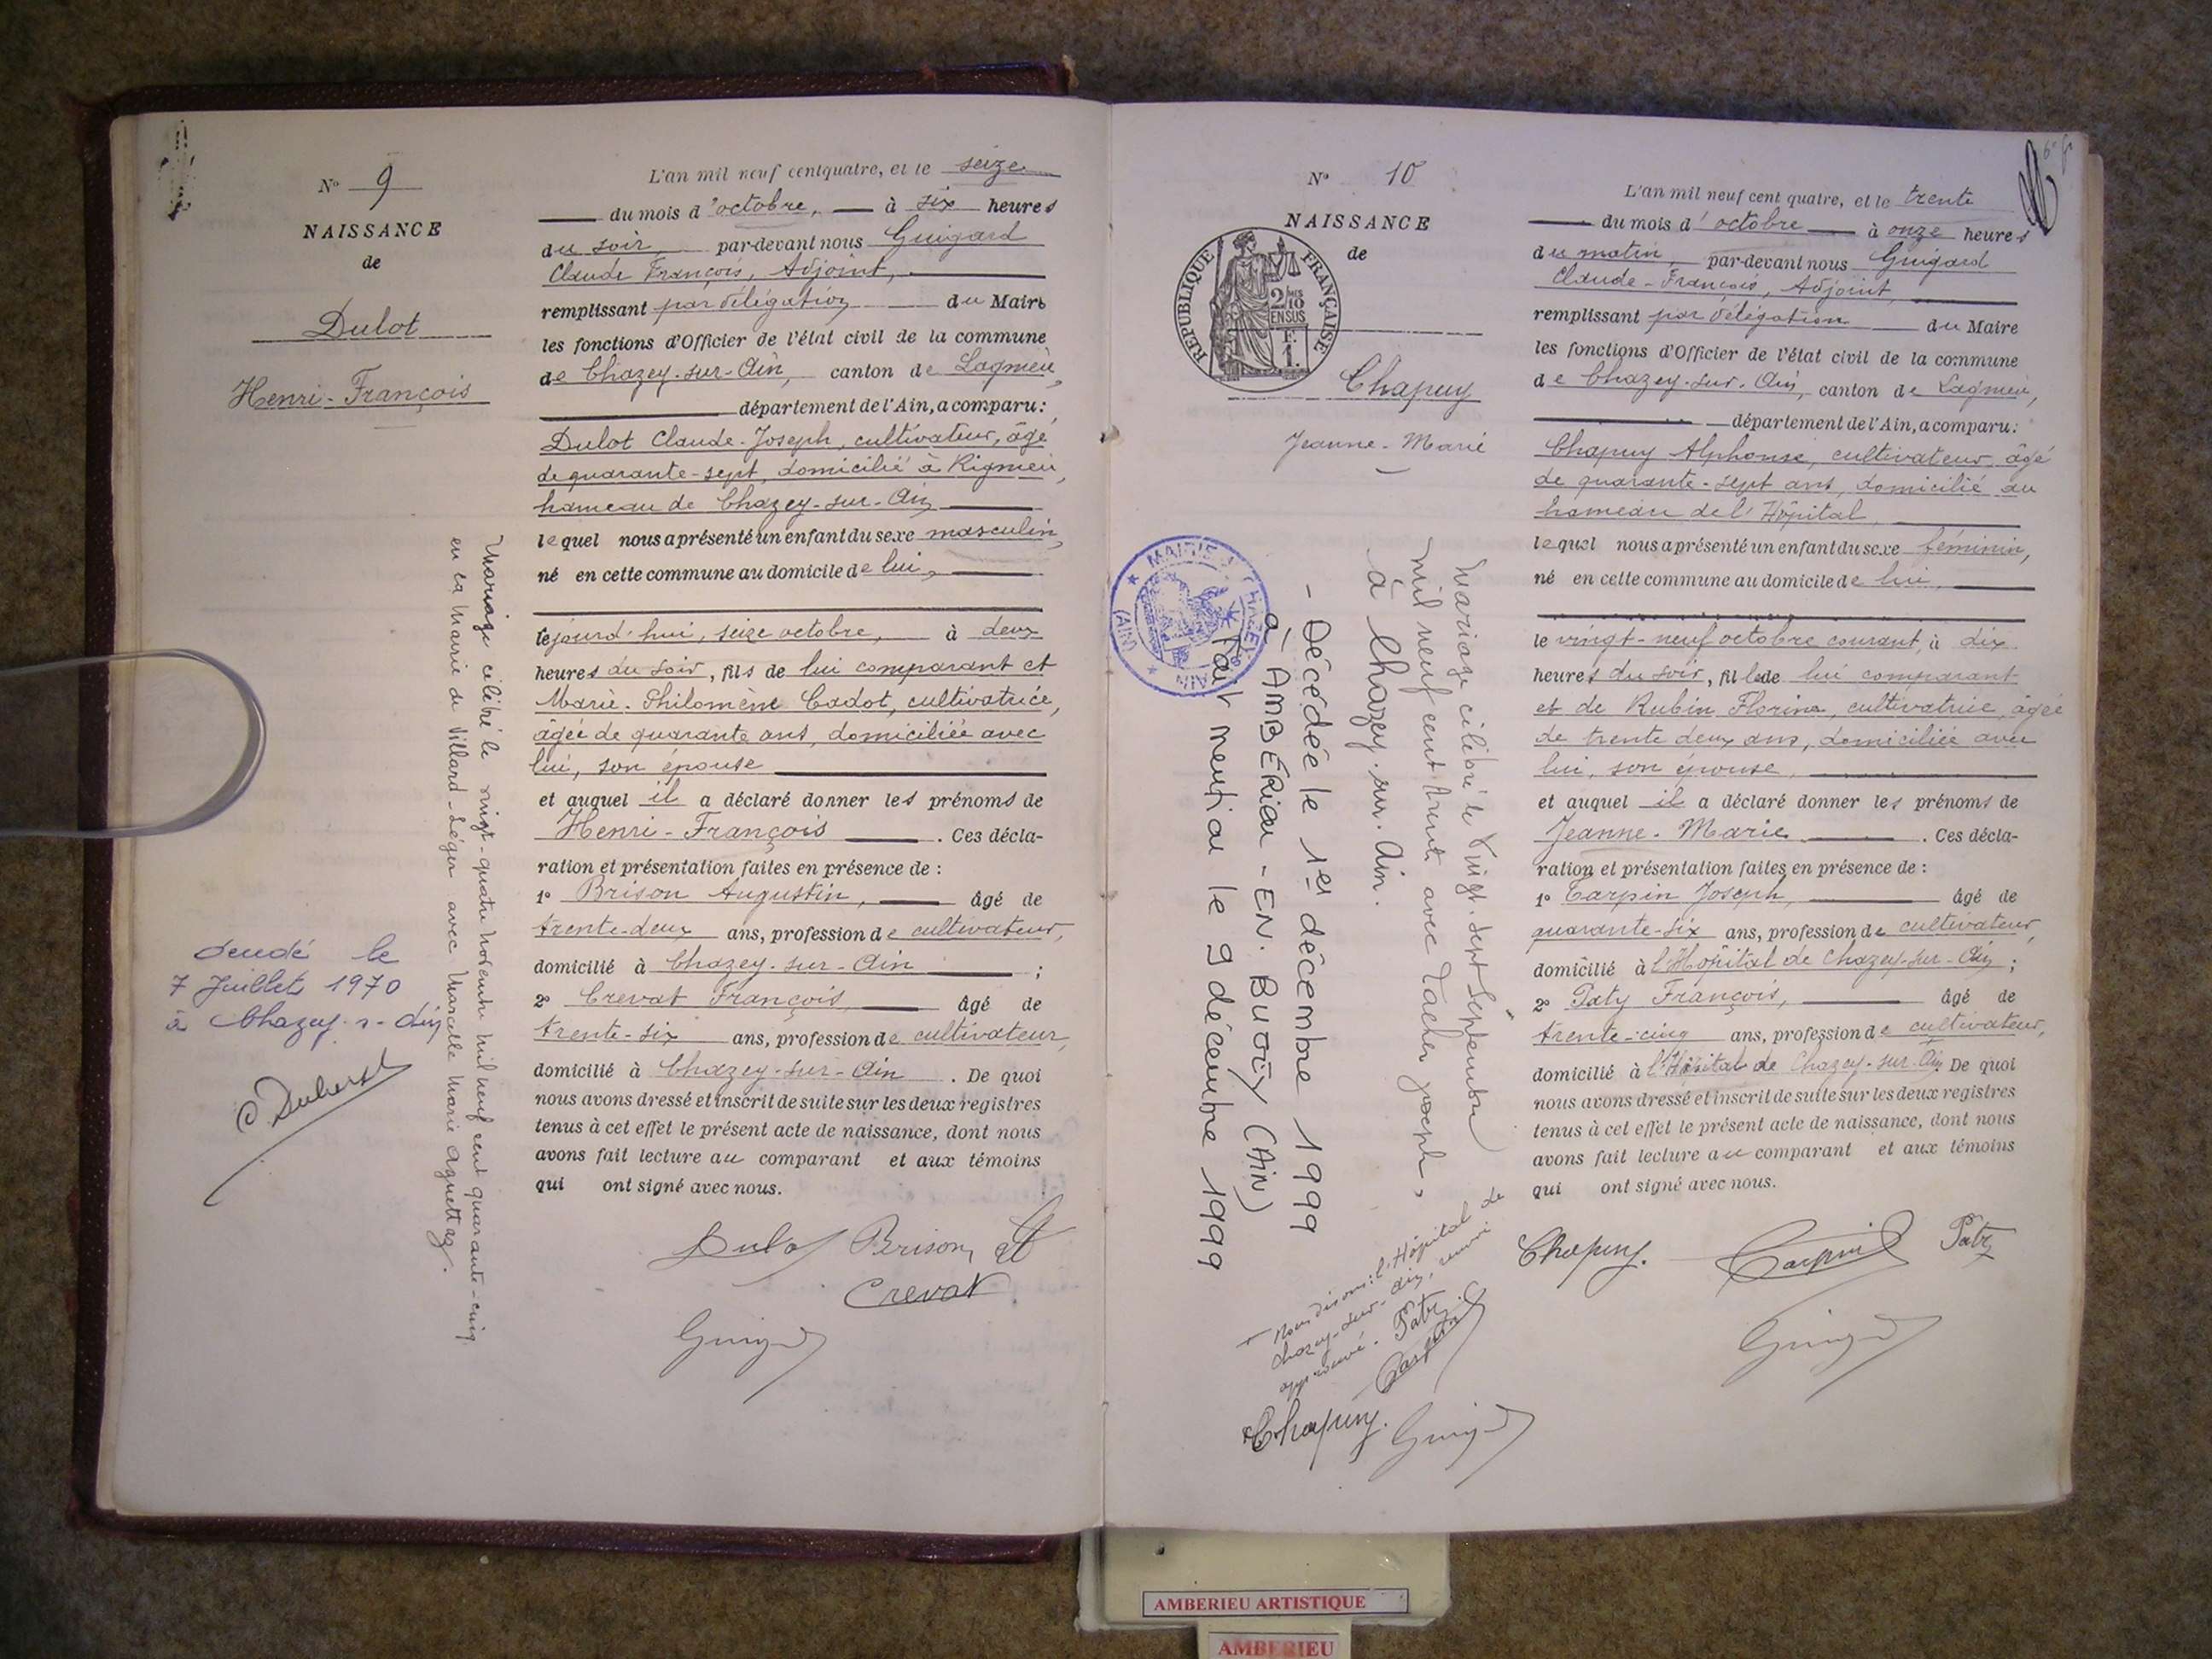 N° 9
NAISSANCE
de
Dulot
Henri-François
Mariage célébré le vingt-quatre novembre mil neuf cent quarante-cinq
en la mairie de Villard-Léger avec Marcelle Marie Aguettaz.
décédé le
7 Juillet 1970
à Chazey-s-Ain
L'an mil neuf cent quatre, et le seize
du mois d'octobre, à six heures
du soir, par-devant nous Guigard
Claude François, Adjoint,
remplissant par délégation du Maire
les fonctions d'Officier de l'état civil de la commune
de Chazey-sur-Ain, canton de Lagnieu,
département de l'Ain, a comparu:
Dulot Claude-Joseph, cultivateur, âgé
de quarante-sept, domicilié à Rignieu,
hameau de Chazey-sur-Ain
lequel nous a présenté un enfant du sexe masculin,
né en cette commune au domicile de lui,
cejourd'hui, seize octobre, à deux
heures du soir, fils de lui comparant et
Marie-Philomène Cadot, cultivatrice,
âgée de quarante ans, domiciliée avec
lui, son épouse
et auquel il a déclaré donner les prénoms de
Henri-François. Ces décla-
ration et présentation faites en présence de :
1° Brison Augustin, âgé de
trente-deux ans, profession de cultivateur,
domicilié à Chazey-sur-Ain ;
2° Crevat François, âgé de
trente-six ans, profession de cultivateur,
domicilié à Chazey-sur-Ain. De quoi
nous avons dressé et inscrit de suite sur les deux registres
tenus à cet effet le présent acte de naissance, dont nous
avons fait lecture au comparant et aux témoins
qui ont signé avec nous.
Dulot Brison
Crevat
Guigard
N° 10
NAISSANCE
de
REPUBLIQUE FRANÇAISE
2/10
EN SUS
F.
1.
Chapuy
Jeanne-Marie
Mariage célébré le vingt-sept Septembre
mil neuf cent trente avec Tacher Joseph,
à Chazey-sur-Ain.
- Décédée le 1er décembre 1999
à AMBÉRIEU-EN-BUGEY (AIN)
Fait mention le 9 décembre 1999
MAIRIE
(AIN)
Nous disons: l'Hôpital de
Chazey-sur-Ain,
approuvé. Paty
Carpin
Chapuy. Guigard
L'an mil neuf cent quatre, et le trente
du mois d'octobre à onze heures
du matin, par-devant nous Guigard
Claude-François, Adjoint,
remplissant par délégation du Maire
les fonctions d'Officier de l'état civil de la commune
de Chazey-sur-Ain, canton de Lagnieu,
département de l'Ain, a comparu:
Chapuy Alphonse, cultivateur, âgé
de quarante-sept ans, domicilié au
hameau de l'Hôpital,
lequel nous a présenté un enfant du sexe féminin,
né en cette commune au domicile de lui,
le vingt-neuf octobre courant, à dix
heures du soir, fille de lui comparant
et de Rubin Florine, cultivatrice, âgée
de trente deux ans, domiciliée avec
lui, son épouse,
et auquel il a déclaré donner les prénoms de
Jeanne-Marie. Ces décla-
ration et présentation faites en présence de :
1° Carpin Joseph, âgé de
quarante-six ans, profession de cultivateur,
domicilié à l'Hôpital de Chazey-sur-Ain ;
2° Paty François, âgé de
trente-cinq ans, profession de cultivateur,
domicilié à l'Hôpital de Chazey-sur-Ain De quoi
nous avons dressé et inscrit de suite sur les deux registres
tenus à cet effet le présent acte de naissance, dont nous
avons fait lecture au comparant et aux témoins
qui ont signé avec nous.
Chapuy. Carpin Paty
Guigard
AMBERIEU ARTISTIQUE
AMBERIEU